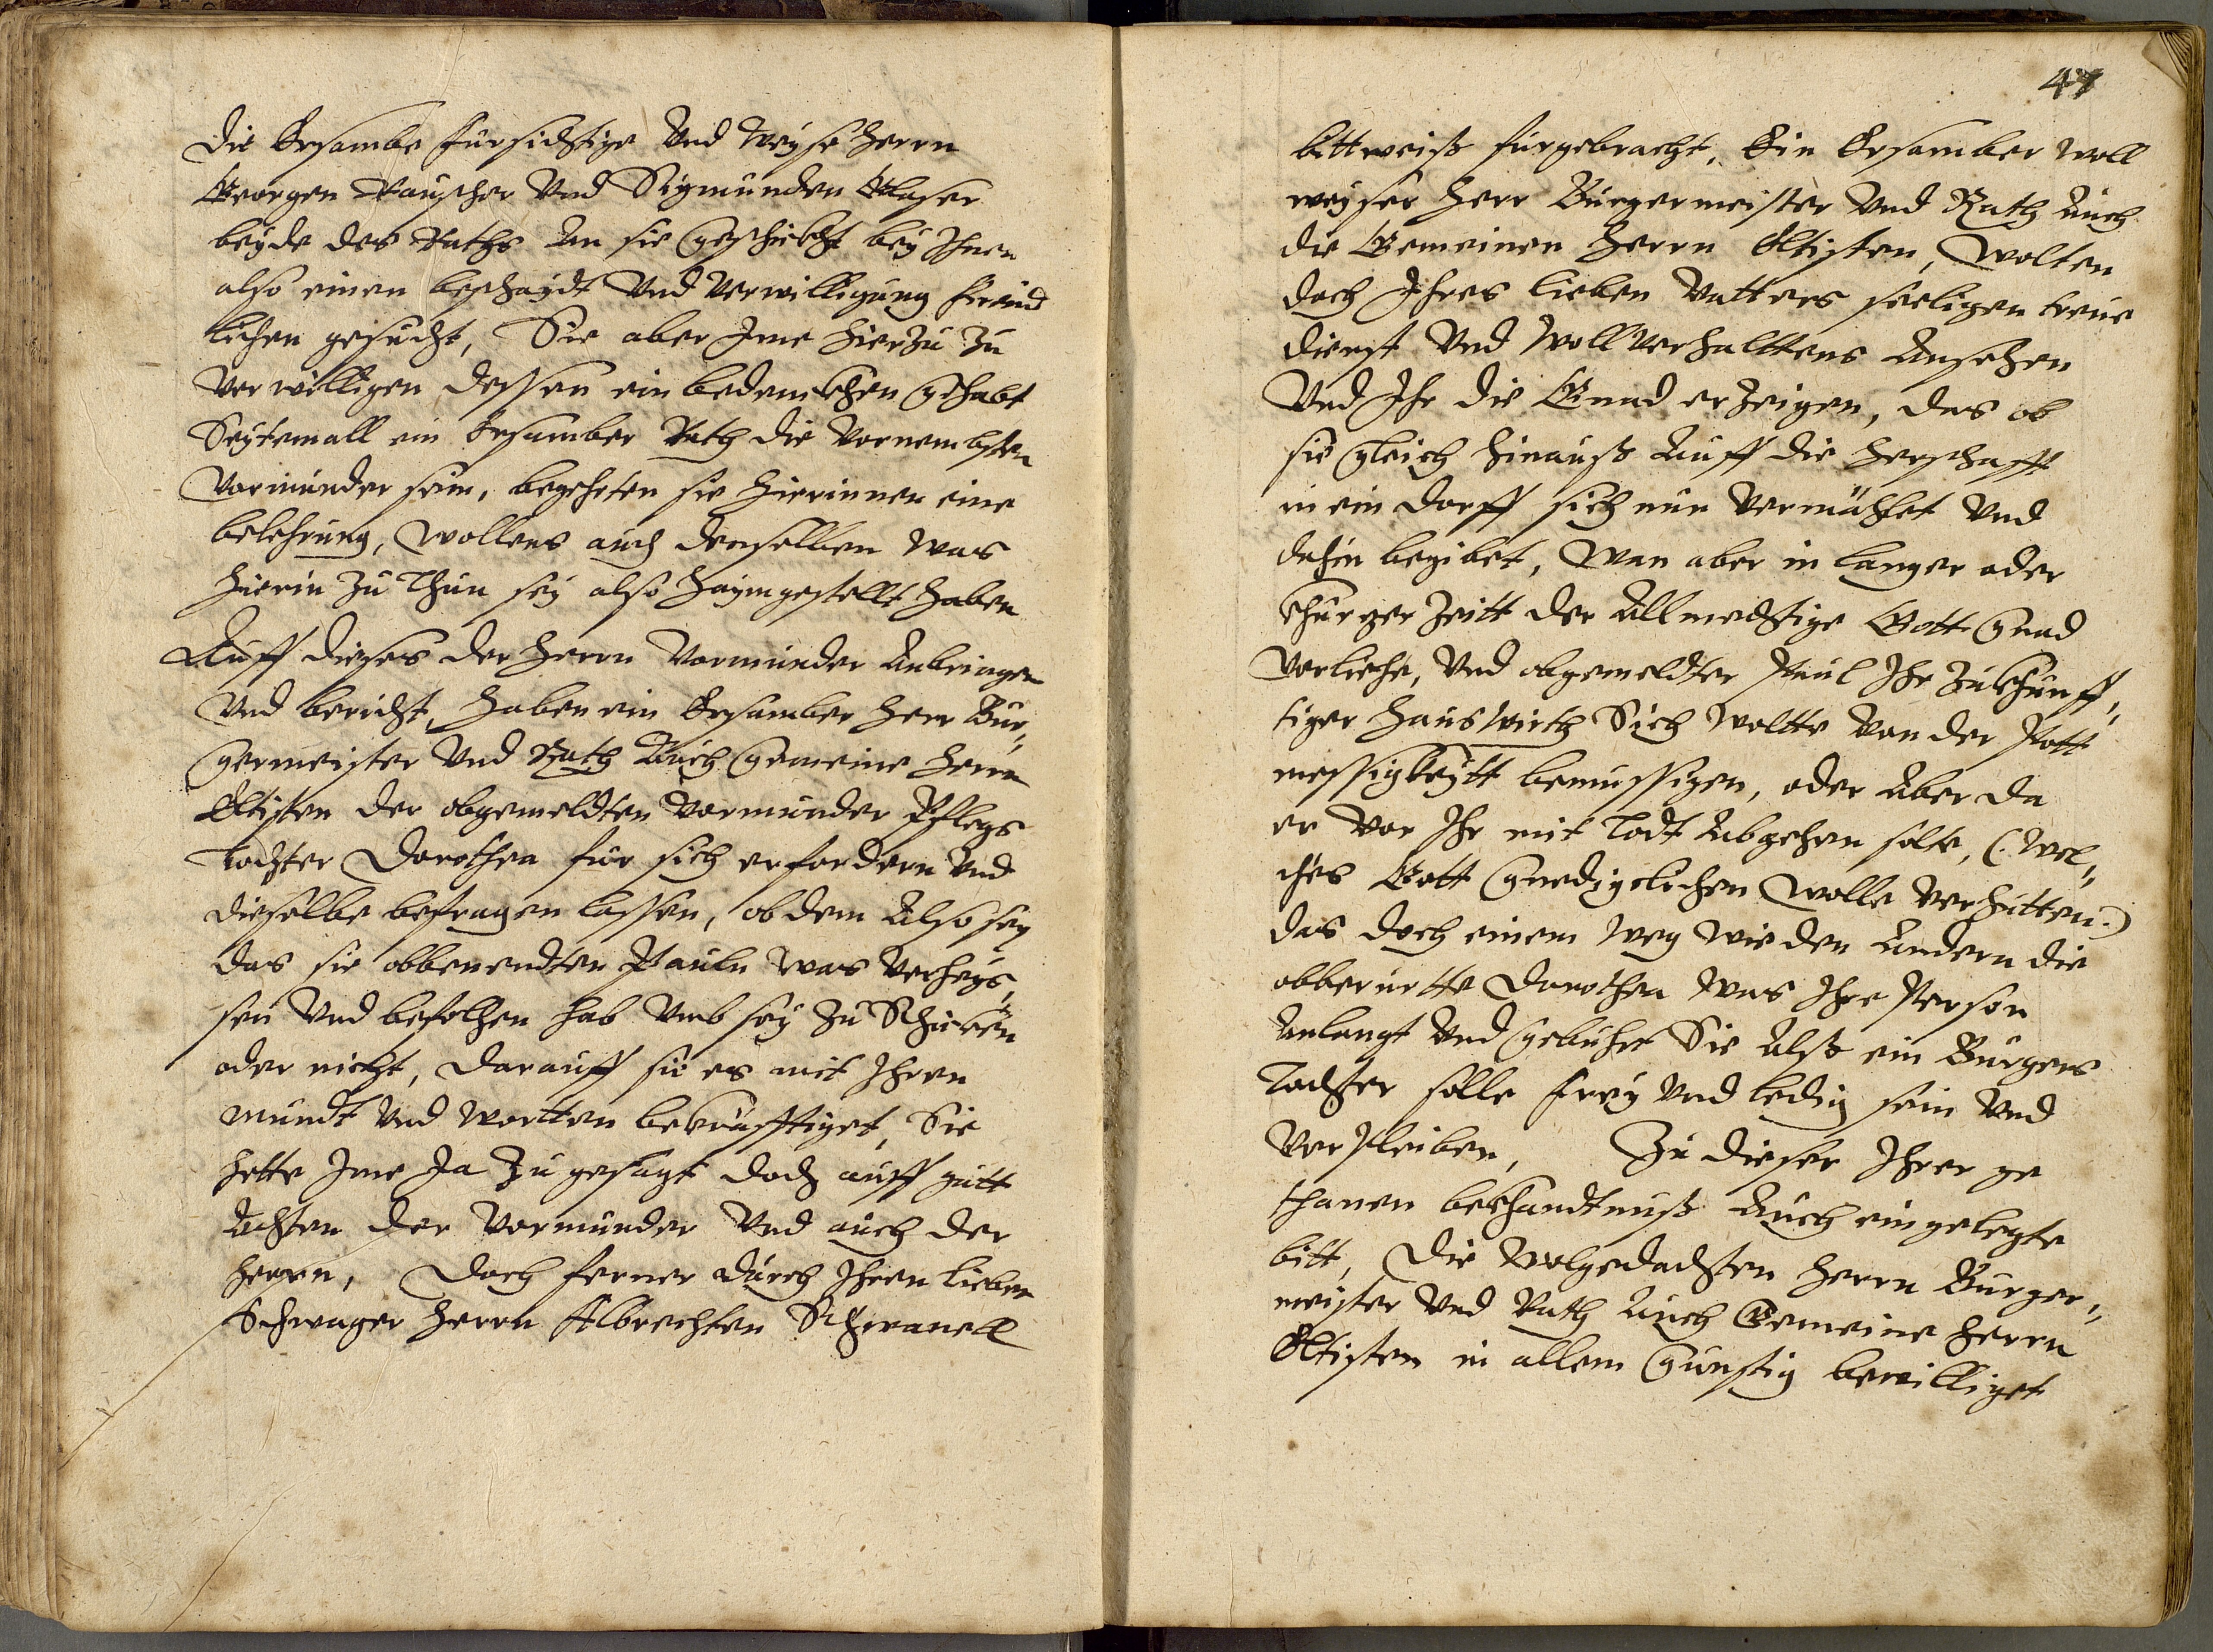 die Ersambe fursichtige Vnd Weyse Herrn
Georgen Rauscher Vnd Sigmunden Glaser
beyde des Raths An sie geschickht bey Ihnen
also einen beschaydt Vnd Verwilligung freund
lichen gesucht, Sie aber Ime hierzu zu
Verwilligen dessen ein bedenckhen gehabt
Seytemall ein Ersamber Rath die Vornembsten
Vormunder sein, begehrten sie hierinnen eine
belehrung, Wollens auch denselben Was
hierin zu Thun sey also haymgestellt haben
Auff dieses der Herrn Vormunder Anbringen
Vnd bericht, haben ein Ersamber Herr Bur„
germeister Vnd Rath Auch gemeine Herrn
Eltisten der obgemeldten Vormunder Pflegs
Tochter Dorothea fur sich erfordern Vnd
dieselbe befragen lassen, ob dem Also sey
das sie obbenendten Pauln was Verheys„
sen Vnd befolhen hab Vmb sey zu Schicken
oder nicht, darauff sie es mit Ihren
mundt Vnd wortten bekräfftiget, Sie
hette Ime Ja zu gesagt doch auff gutt
Achten der Vormunder Vnd auch der
Herrn, Doch ferner durch Ihren lieben
Schwager Herrn Albrechten Schwanell
47
bittweiß furgebracht, Ein Ersamber Woll
weyser Herr Burgermeister Vnd Rath Auch
die Gemeinen Herrn Eltisten, Wolten
doch Ihres lieben Vatters seeligen treue
dienst Vnd Wollverhalttens Ansehen
Vnd Ihr die Gnad erzeigen, das ob
sie gleich hinauß Auff die Herschafft
in ein dorff sich nun Vermählet Vnd
dahin begibet, Wan aber in langer oder
khurzer Zeitt der Allmechtige Gott gnad
Verliehe, Vnd obgemeldter Paul Ihr zukhunff„
tiger Hauswirth Sich Woltte Von der Pott
messigkeytt bemussigen, oder Aber da
er Vor Ihr mit Todt Abgehen solte, (: Wel„
ches Gott gnedigclichen Wolle Verhütten:)
das doch einem Weg Wie den Andern die
obberurtte Dorothea Was Ihre Person
Anlangt Vnd gebuhrt Sie Alß ein Burgers
Tochter solle frey Vnd ledig sein Vnd
Verpleiben, Zu dieser Ihrer ge
thanen bekhandtnuß Auch eingelegte
bitt, Die Wolgedachten Herrn Burger„
meister Vnd Rath Auch Gemeine Herrn
Eltisten in allem gunstig bewilliget